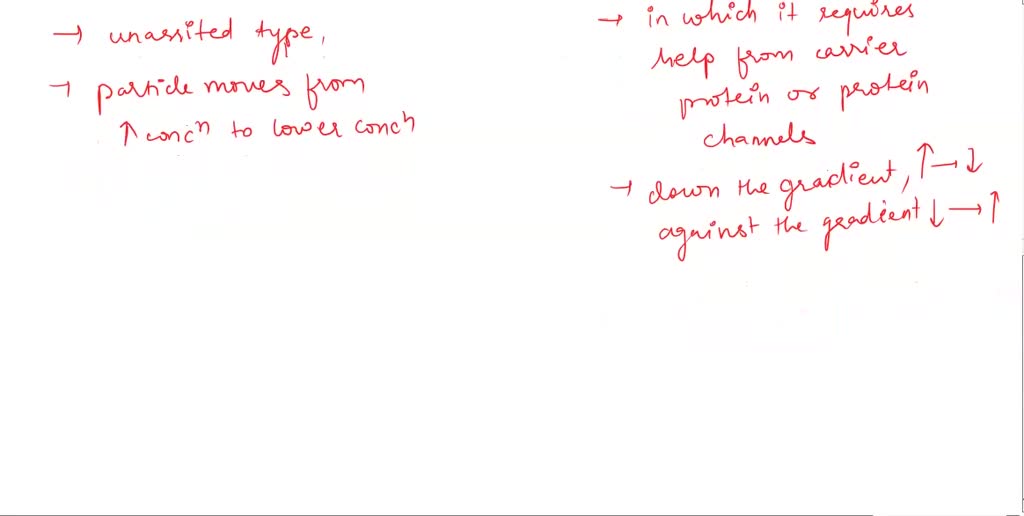 → unassited type,
→ particle moves from
↑ concn to lower concn
→ in which it requires
help from carrier
protein or protein
channels
→ down the gradient, ↑→↓
against the gradient ↓→↑